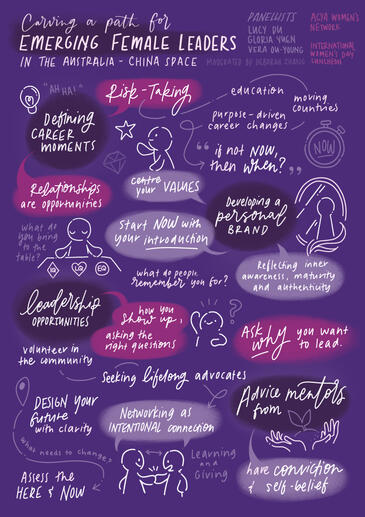 Carving a path for
EMERGING FEMALE LEADERS
IN THE AUSTRALIA - CHINA SPACE
PANELLISTS
LUCY DU
GLORIA YUEN
VERA OU-YOUNG
MODERATED BY DEBORAH ZHANG
ACYA WOMEN'S
NETWORK
INTERNATIONAL
WOMEN'S DAY
LUNCHEON
"AH HA!"
Defining
CAREER
MOMENTS
Risk-Taking
education
moving
countries
purpose-driven
career changes
"if not NOW,
then when?"
NOW
Relationships
are opportunities
centre
your VALUES
Developing a
personal
BRAND
what do
you bring
to the
table?
IQ
LQ
EQ
Start NOW with
your introduction
what do people
remember you for?
Reflecting inner
awareness, maturity
and authenticity
leadership
OPPORTUNITIES
how you
show up,
asking the
right questions
?
Ask
why you want
to lead.
volunteer in
the community
Seeking lifelong advocates
DESIGN your
future
with clarity
Networking as
INTENTIONAL connection
Advice from mentors
what needs to change?
Learning
and
Giving
Assess the
HERE & NOW
have conviction
& self-belief